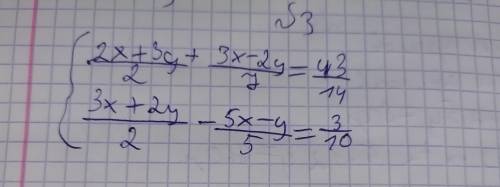 √3
{ (2x+3y)/2 + (3x-2y)/7 = 43/14
(3x+2y)/2 - (5x-y)/5 = 3/10